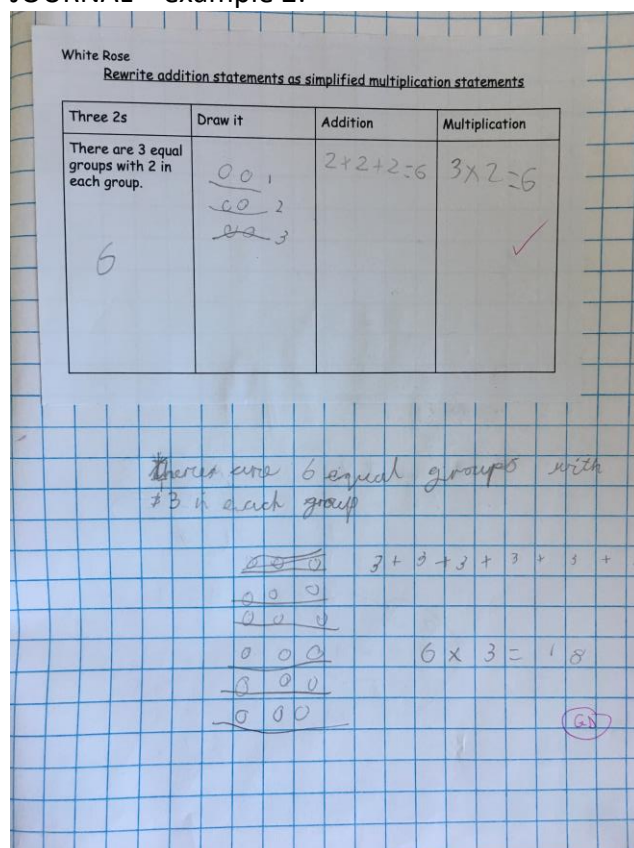 JOURNAL – example 2:
White Rose
Rewrite addition statements as simplified multiplication statements
Three 2s
Draw it
Addition
Multiplication
There are 3 equal
groups with 2 in
each group.
6
00 1
00 2
00 3
2+2+2=6
3×2=6
are 6 equal groups with
3 in each group
000
000
000
000
000
000
3+3+3+3+3+3+
6×3=18
GD